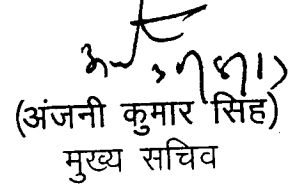 (अंजनी कुमार सिंह)
मुख्य सचिव